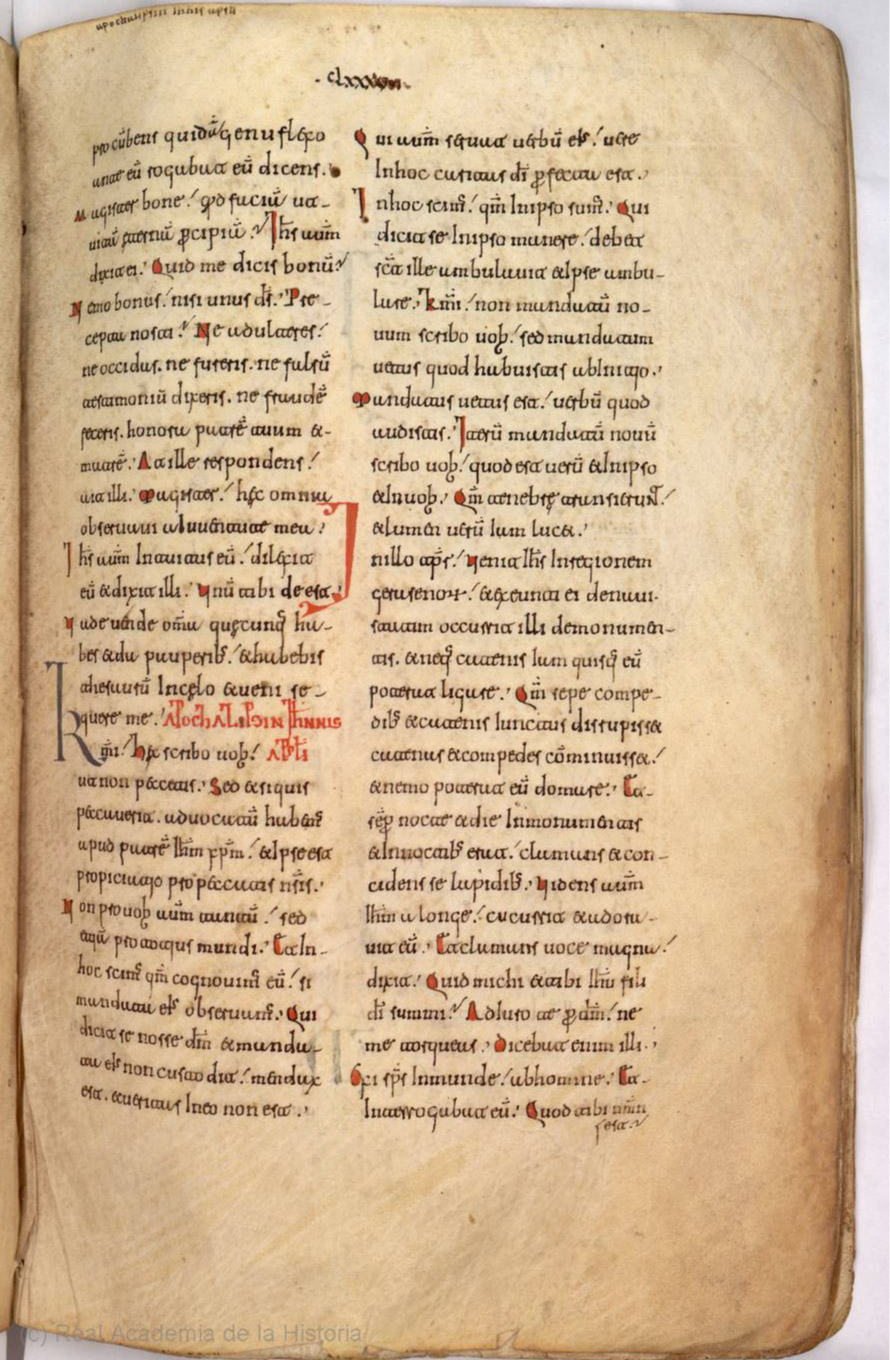 apochalipsin Iohnis apsli
clxxxvii
procūbens quidā genu flexo
ante eū rogabat eū dicens.
Magister bone! qd faciā ut
uitā eternā percipiā? Ihs autm
dixit ei. Quid me dicis bonū?
Nemo bonus! nisi unus ds. Pre-
cepta nosti? Ne adulteres!
ne occidas. ne fureris. ne falsū
testimoniū dixeris. ne fraudē
feceris. honora patrē tuum et
matrē. At ille respondens!
ait illi. Magister! hęc omnia
obseruaui a iuuentute mea?
Ihs autm Intuitus eū! dilexit
eū et dixit illi. Unū tibi deest.
Uade uende omīa quęcunq ha-
bes et da pauperibs. et habebis
thesaurū In cęlo et ueni se-
quere me. APOCHALIPSIN IOHNNIS
Kmi! hęc scribo uob! APSLI
ut non peccetis. Sed et si quis
peccauerit. aduocatū habems
apud patrē Ihm xpm! et Ipse est
propiciatjo pro peccatis nsis.
Non pro uob autm tantū! sed
etiā pro totius mundi. Et In
hoc scims qm cognouims eū! si
mandata eis obseruams. Qui
dicit se nosse dm et manda-
ta eis non custodit! mendax
est. et ueritas In eo non est.
Qui autm seruat uerbū eis! uere
In hoc caritas di perfecta est.
In hoc scims! qm In ipso sums. Qui
dicit se In ipso manere! debet
sct ille ambulauit et Ipse ambu-
lare. Kmi! non mandatū no-
uum scribo uob! sed mandatum
uetus quod habuistis ab Initjo.
Mandatus uetus est! uerbū quod
audistis. Iterū mandatū nouū
scribo uob! quod est uerū et In ipso
et In uob. Qm tenebrę transierunt!
et lumen uerū Iam lucet.
In illo tps! uenit Ihs In regionem
gerasenor! et exeunti ei de naui.
statim occurrit illi de monumen-
tis. et neq catenis Iam quisq eū
poterat ligare. Qm sepe compe-
dibs et catenis Iunctus disrupisset
catenas et compedes cōminuisset!
et nemo poterat eū domare. Et
semp nocte et die In monumentis
et In montibs erat. clamans et con-
cidens se lapidibs. Uidens autm
Ihm a longe! cucurrit et adora-
uit eū. Et clamans uoce magna!
dixit. Quid michi et tibi Ihu fili
di summi? Adiuro te per dm! ne
me torqueas. Dicebat enim illi.
Exi sps Inmunde! ab homine. Et
Interrogabat eū. Quod tibi nomn
est?
(c) Real Academia de la Historia